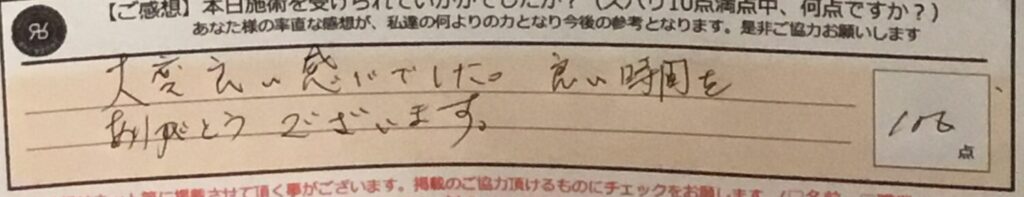 【ご感想】本日施術を受けられていかがでしたか？（ズバリ10点満点中、何点ですか？）
あなた様の率直な感想が、私達の何よりの力となり今後の参考となります。是非ご協力お願いします
大変良い感じでした。良い時間を
ありがとうございます。
100
点
に掲載させて頂く事がございます。掲載のご協力頂けるものにチェックをお願します